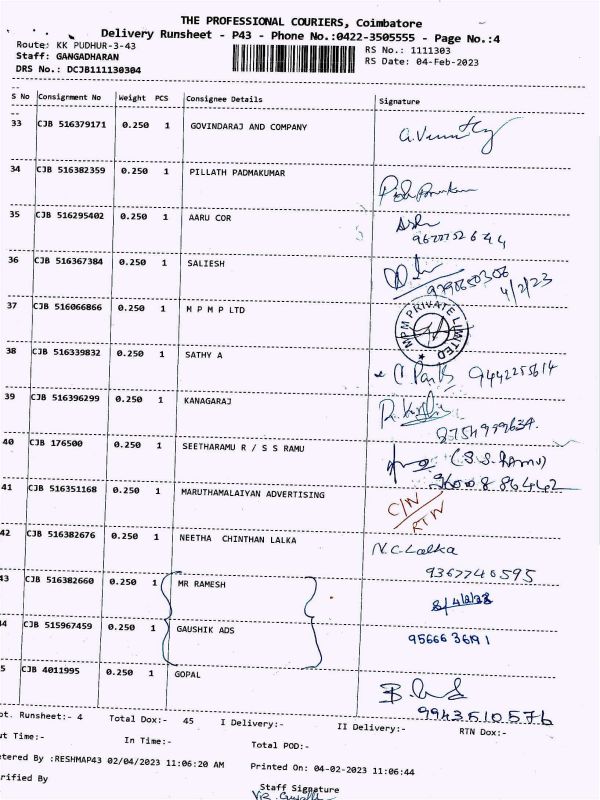 THE PROFESSIONAL COURIERS, Coimbatore
Delivery Runsheet - P43 - Phone No.:0422-3505555 - Page No.:4
Route: KK PUDHUR-3-43
RS No.: 1111303
Staff: GANGADHARAN
RS Date: 04-Feb-2023
DRS No.: DCJB111130304
S No Consignment No Weight PCS Consignee Details Signature
33 CJB 516379171 0.250 1 GOVINDARAJ AND COMPANY
34 CJB 516382359 0.250 1 PILLATH PADMAKUMAR
35 CJB 516295402 0.250 1 AARU COR
36 CJB 516367384 0.250 1 SALIESH
4/2/23
37 CJB 516066866 0.250 1 M P M P LTD
MPM PRIVATE LIMITED
38 CJB 516339832 0.250 1 SATHY A
9442255614
39 CJB 516396299 0.250 1 KANAGARAJ
8754999634.
40 CJB 176500 0.250 1 SEETHARAMU R / S S RAMU
(S.S. RAMU)
9600886462
41 CJB 516351168 0.250 1 MARUTHAMALAIYAN ADVERTISING
C/N
RTN
42 CJB 516382676 0.250 1 NEETHA CHINTHAN LALKA N.C. Lalka
9367746595
43 CJB 516382660 0.250 1 MR RAMESH
44 CJB 515967459 0.250 1 GAUSHIK ADS
5 CJB 4011995 0.250 1 GOPAL
9943510576
ot. Runsheet:- 4 Total Dox:- 45 I Delivery:- II Delivery:- RTN Dox:-
ut Time:- In Time:- Total POD:-
tered By :RESHMAP43 02/04/2023 11:06:20 AM Printed On: 04-02-2023 11:06:44
rified By Staff Signature